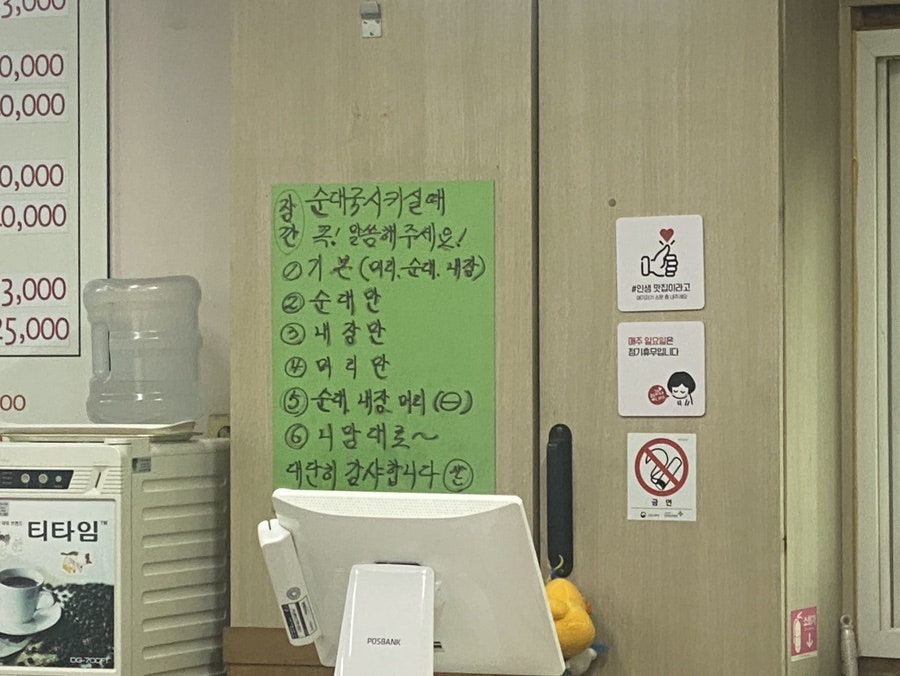 3,000
0,000
0,000
0,000
0,000
3,000
25,000
00
잠깐 순대국시키실때
콕! 말씀해주세요!
① 기본 (머리.순대.내장)
② 순대만
③ 내장만
④ 머리만
⑤ 순대, 내장, 머리 (-)
⑥ 니맘대로~
대단히 감사합니다
#인생 맛집이라고
매주 일요일은
정기휴무입니다
금연
티타임™
DG-700FT
POSBANK
소화기